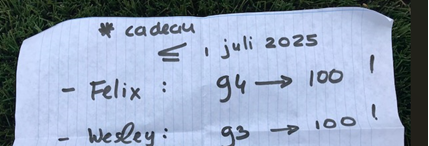 * cadeau
≤ 1 juli 2025
- Felix : 94 → 100 !
- Wesley : 93 → 100 !